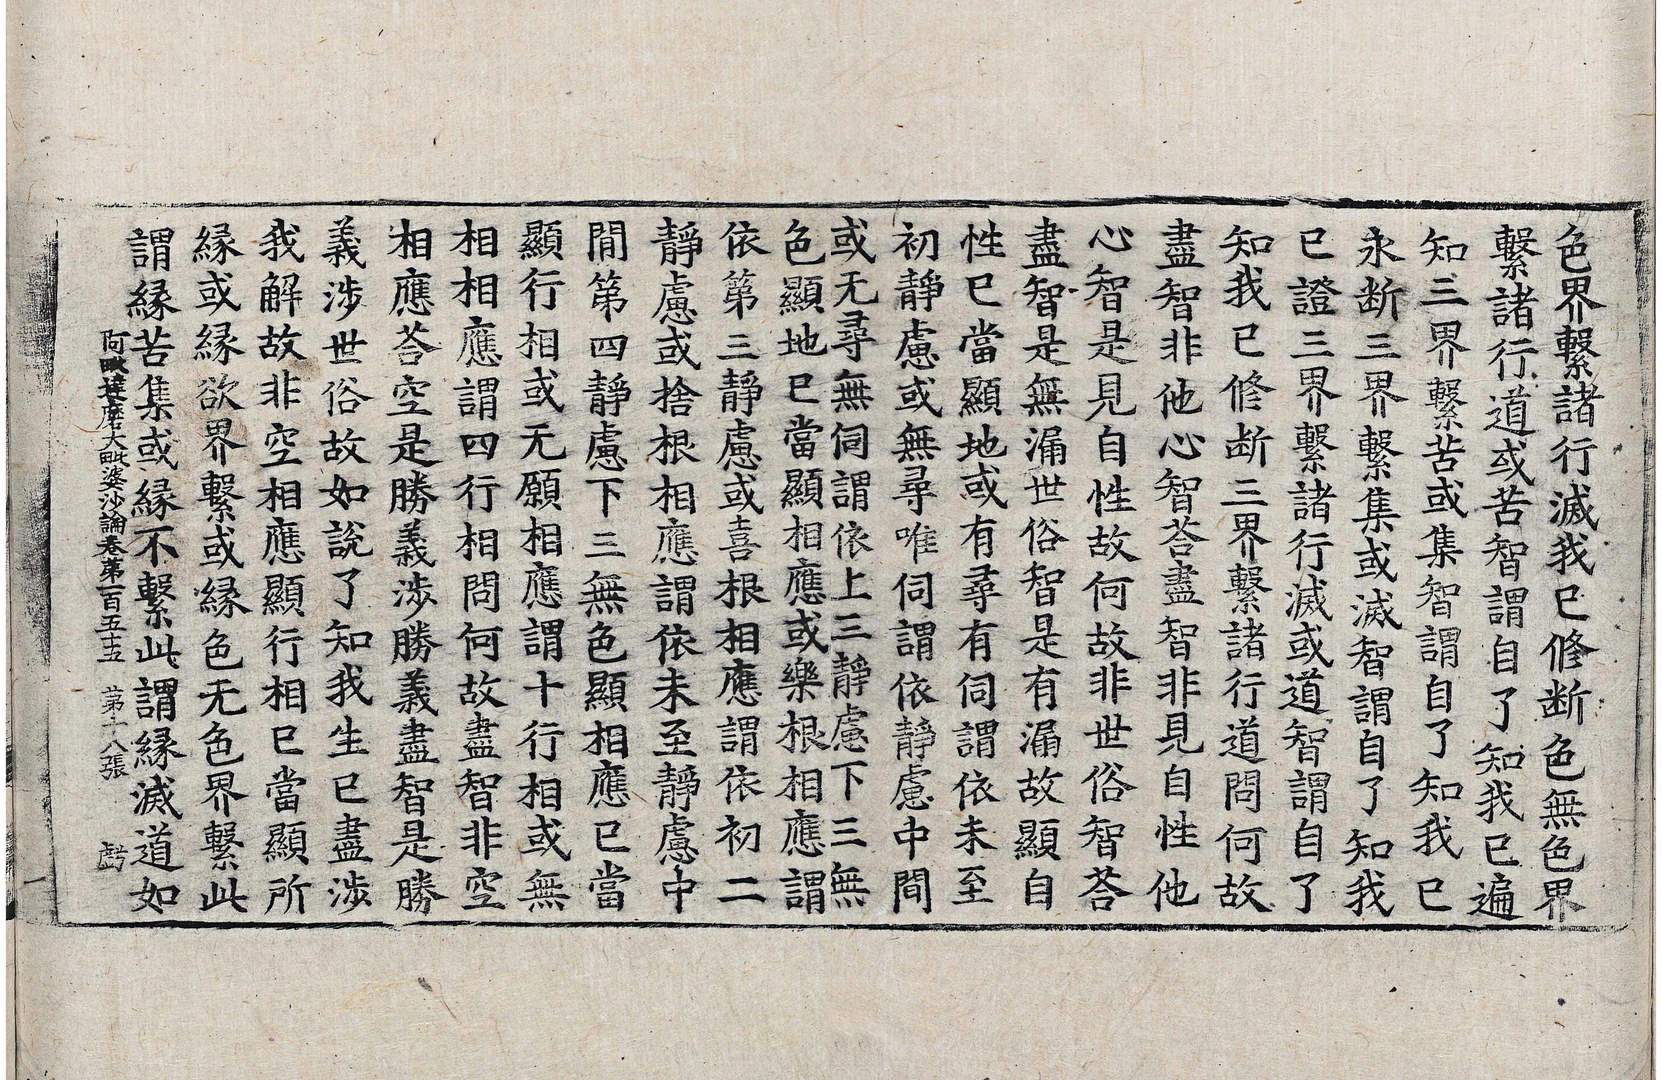 色界繫諸行滅我已修斷色無色界
繫諸行道或苦智謂自了知我已遍
知三界繫苦或集智謂自了知我已
永斷三界繫集或滅智謂自了知我
已證三界繫諸行滅或道智謂自了
知我已修斷三界繫諸行道問何故
盡智非他心智荅盡智非見自性他
心智是見自性故何故非世俗智荅
盡智是無漏世俗智是有漏故顯自
性已當顯地或有尋有伺謂依未至
初靜慮或無尋唯伺謂依靜慮中間
或无尋無伺謂依上三靜慮下三無
色顯地已當顯相應或樂根相應謂
依第三靜慮或喜根相應謂依初二
靜慮或捨根相應謂依未至靜慮中
間第四靜慮下三無色顯相應已當
顯行相或无願相應謂十行相或無
相相應謂四行相問何故盡智非空
相應荅空是勝義涉勝義盡智是勝
義涉世俗故如說了知我生已盡涉
我解故非空相應顯行相已當顯所
緣或緣欲界繫或緣色无色界繫此
謂緣苦集或緣不繫此謂緣滅道如
阿毗達磨大毗婆沙論卷第一百五十五 第十八張 虧